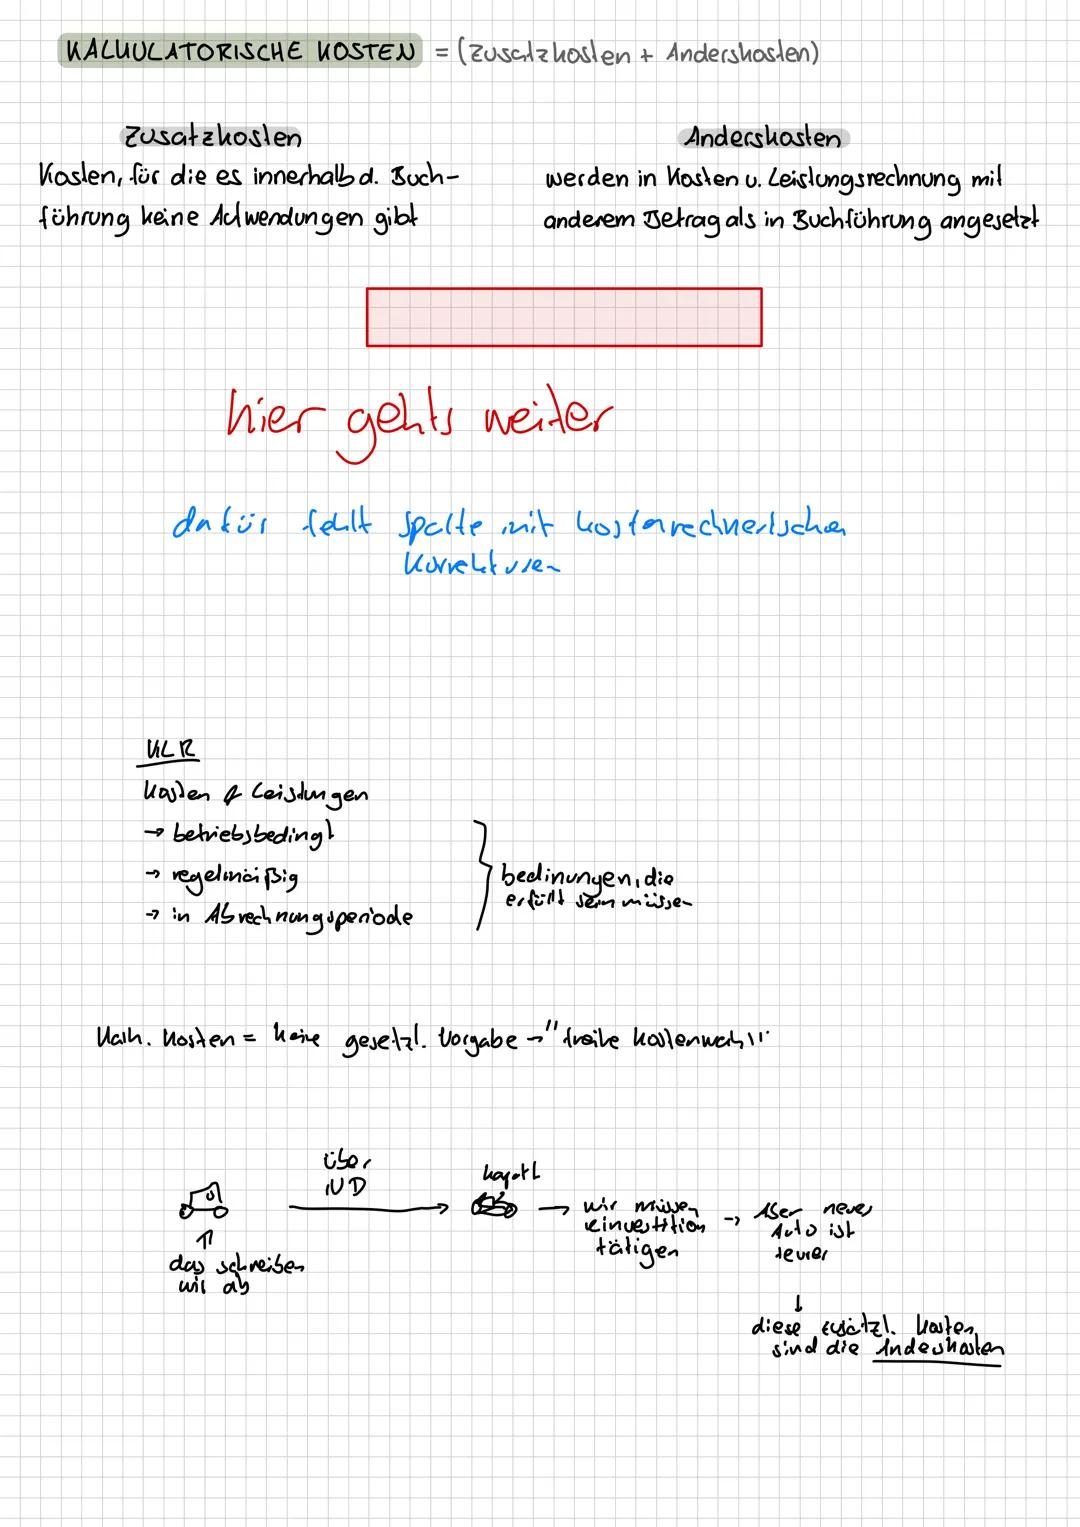 KALKULATORISCHE KOSTEN = (Zusatzkosten + Anderskosten)
Zusatzkosten
Kosten, für die es innerhalb d. Buch-
führung keine Aufwendungen gibt
Anderskosten
werden in Kosten u. Leistungsrechnung mit
anderem Betrag als in Buchführung angesetzt
hier gehts weiter
dafür fehlt Spalte mit kostenrechnerischen
Korrekturen
KLR
Kosten & Leistungen
→ betriebsbedingt
→ regelmäßig
→ in Abrechnungsperiode
bedinungen, die
erfüllt sein müssen
Kalk. Kosten = keine gesetzl. Vorgabe → "freie Kostenwahl"
das schreiben
wir ab
über
ND
kaputt
→ wir müssen
reinvestition
tätigen
→ Aber neues
Auto ist
teurer
↓
diese zusätzl. Kosten
sind die Anderskosten